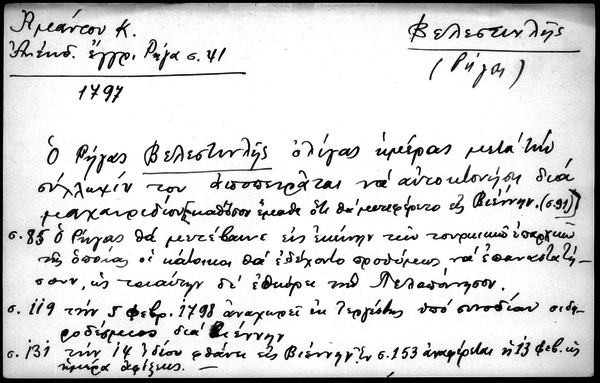 Ἀμάντου Κ.
Ἀνέκδ. ἔγγρ. Ρήγα σ. 41
1797
Βελεστινλῆς
(Ρήγας)
Ὁ Ρήγας Βελεστινλῆς ὀλίγας ἡμέρας μετὰ τὴν
σύλληψίν του ἀποπειρᾶται νὰ αὐτοκτονήσῃ διὰ
μαχαιριδίου καθ' ὅσον ἔμαθε ὅτι θὰ μετεφέρετο εἰς Βιέννην. (σ. 91)
σ. 85 Ὁ Ρήγας θὰ μετέβαινε εἰς ἐκείνην τῶν τουρκικῶν ἐπαρχιῶν
τῆς ὁποίας οἱ κάτοικοι θὰ ἐδέχοντο προθύμως νὰ ἐπαναστατή-
σουν, ὡς τοιαύτην δ' ἐθεώρει τὴν Πελοπόννησον.
σ. 119 τὴν 5 φεβρ. 1798 ἀναχωρεῖ ἐκ Τεργέστης ὑπὸ συνοδίαν σιδη-
ροδέσμιος διὰ Βιέννην
σ. 131 τὴν 14 ἰδίου φθάνει εἰς Βιέννην. ἐν σ. 153 ἀναφέρεται ἡ 13 φεβ. ὡς
ἡμέρα ἀφίξεως. —